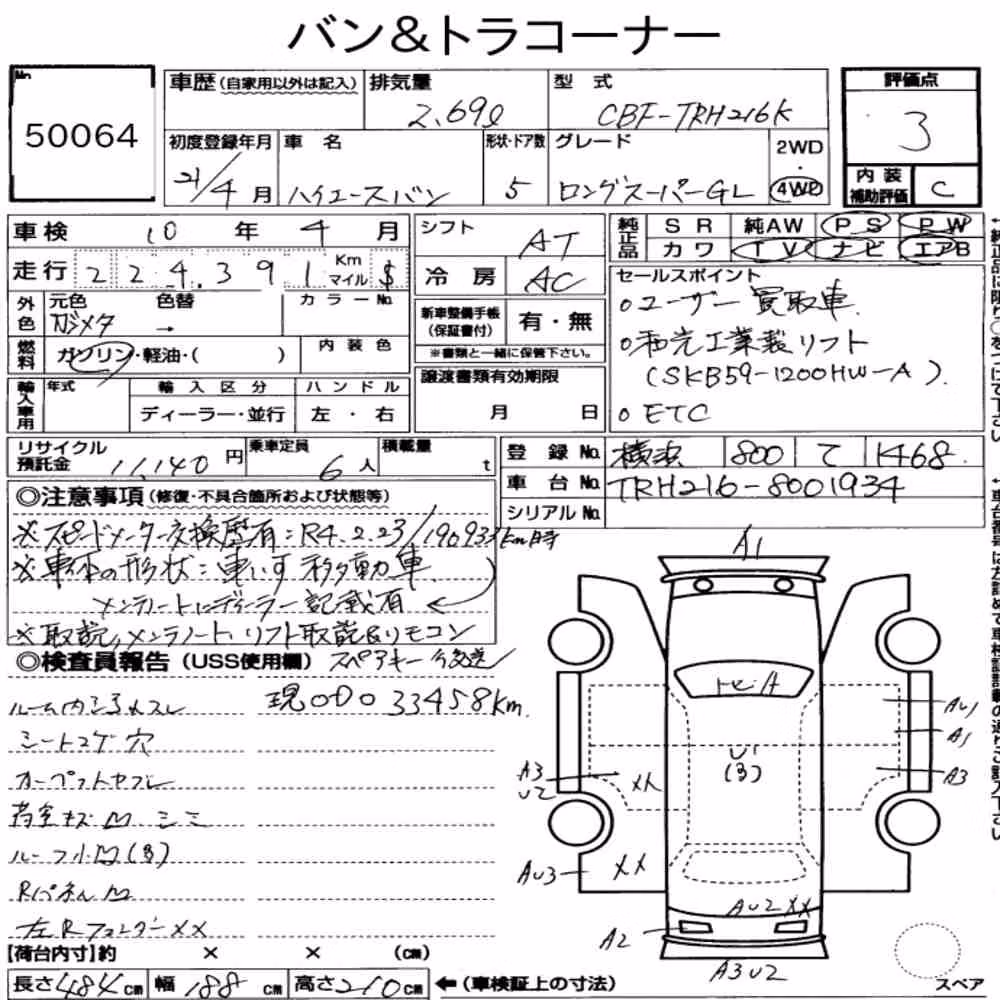 バン&トラコーナー
No. 50064
車歴(自家用以外は記入)
排気量 2.69ℓ
型式 CBF-TRH216K
評価点 3
初度登録年月 21/4月
車名 ハイエースバン
形状・ドア数 5
グレード ロングスーパーGL
2WD・4WD
内装補助評価 C
車検 10年4月
シフト AT
純正品 SR 純AW PS PW
カワ TV ナビ エアB
走行 224,391 Km マイル $
冷房 AC
セールスポイント
○ユーザー買取車
○和光工業製リフト
(SKB59-1200HW-A).
○ETC
外色 元色 ガンメタ 色替 → カラーNo.
新車整備手帳(保証書付) 有・無
※書類と一緒に保管下さい。
燃料 ガソリン・軽油・( ) 内装色
輸入車用 年式 輸入区分 ハンドル
ディーラー・並行 左・右
譲渡書類有効期限
月 日
リサイクル預託金 11,140円
乗車定員 6人
積載量 t
登録No. 横浜 800 て 1468
車台No. TRH216-8001934
シリアルNo.
◎注意事項(修復・不具合箇所および状態等)
※スピードメーター交換歴有:R4.2.23/190933km時
※車体の形状:車いす移動車
メンテノートにディーラー記載有
※取説,メンテノート,リフト取説&リモコン
スペアキー 今後送
◎検査員報告(USS使用欄)
現ODO 33458km.
ルーム内
シートコゲ穴
カーペットヤブレ
荷室キズ凹シミ
ルーフ小凹(B)
Rパネル凹
左Rフェンダーxx
【荷台内寸】約 × × (cm)
長さ484cm 幅188cm 高さ210cm ←(車検証上の寸法)
A1
U1
(B)
AU1
A1
A3
A3
U2
AU3
XX
AU2 XX
A2
A3U2
スペア